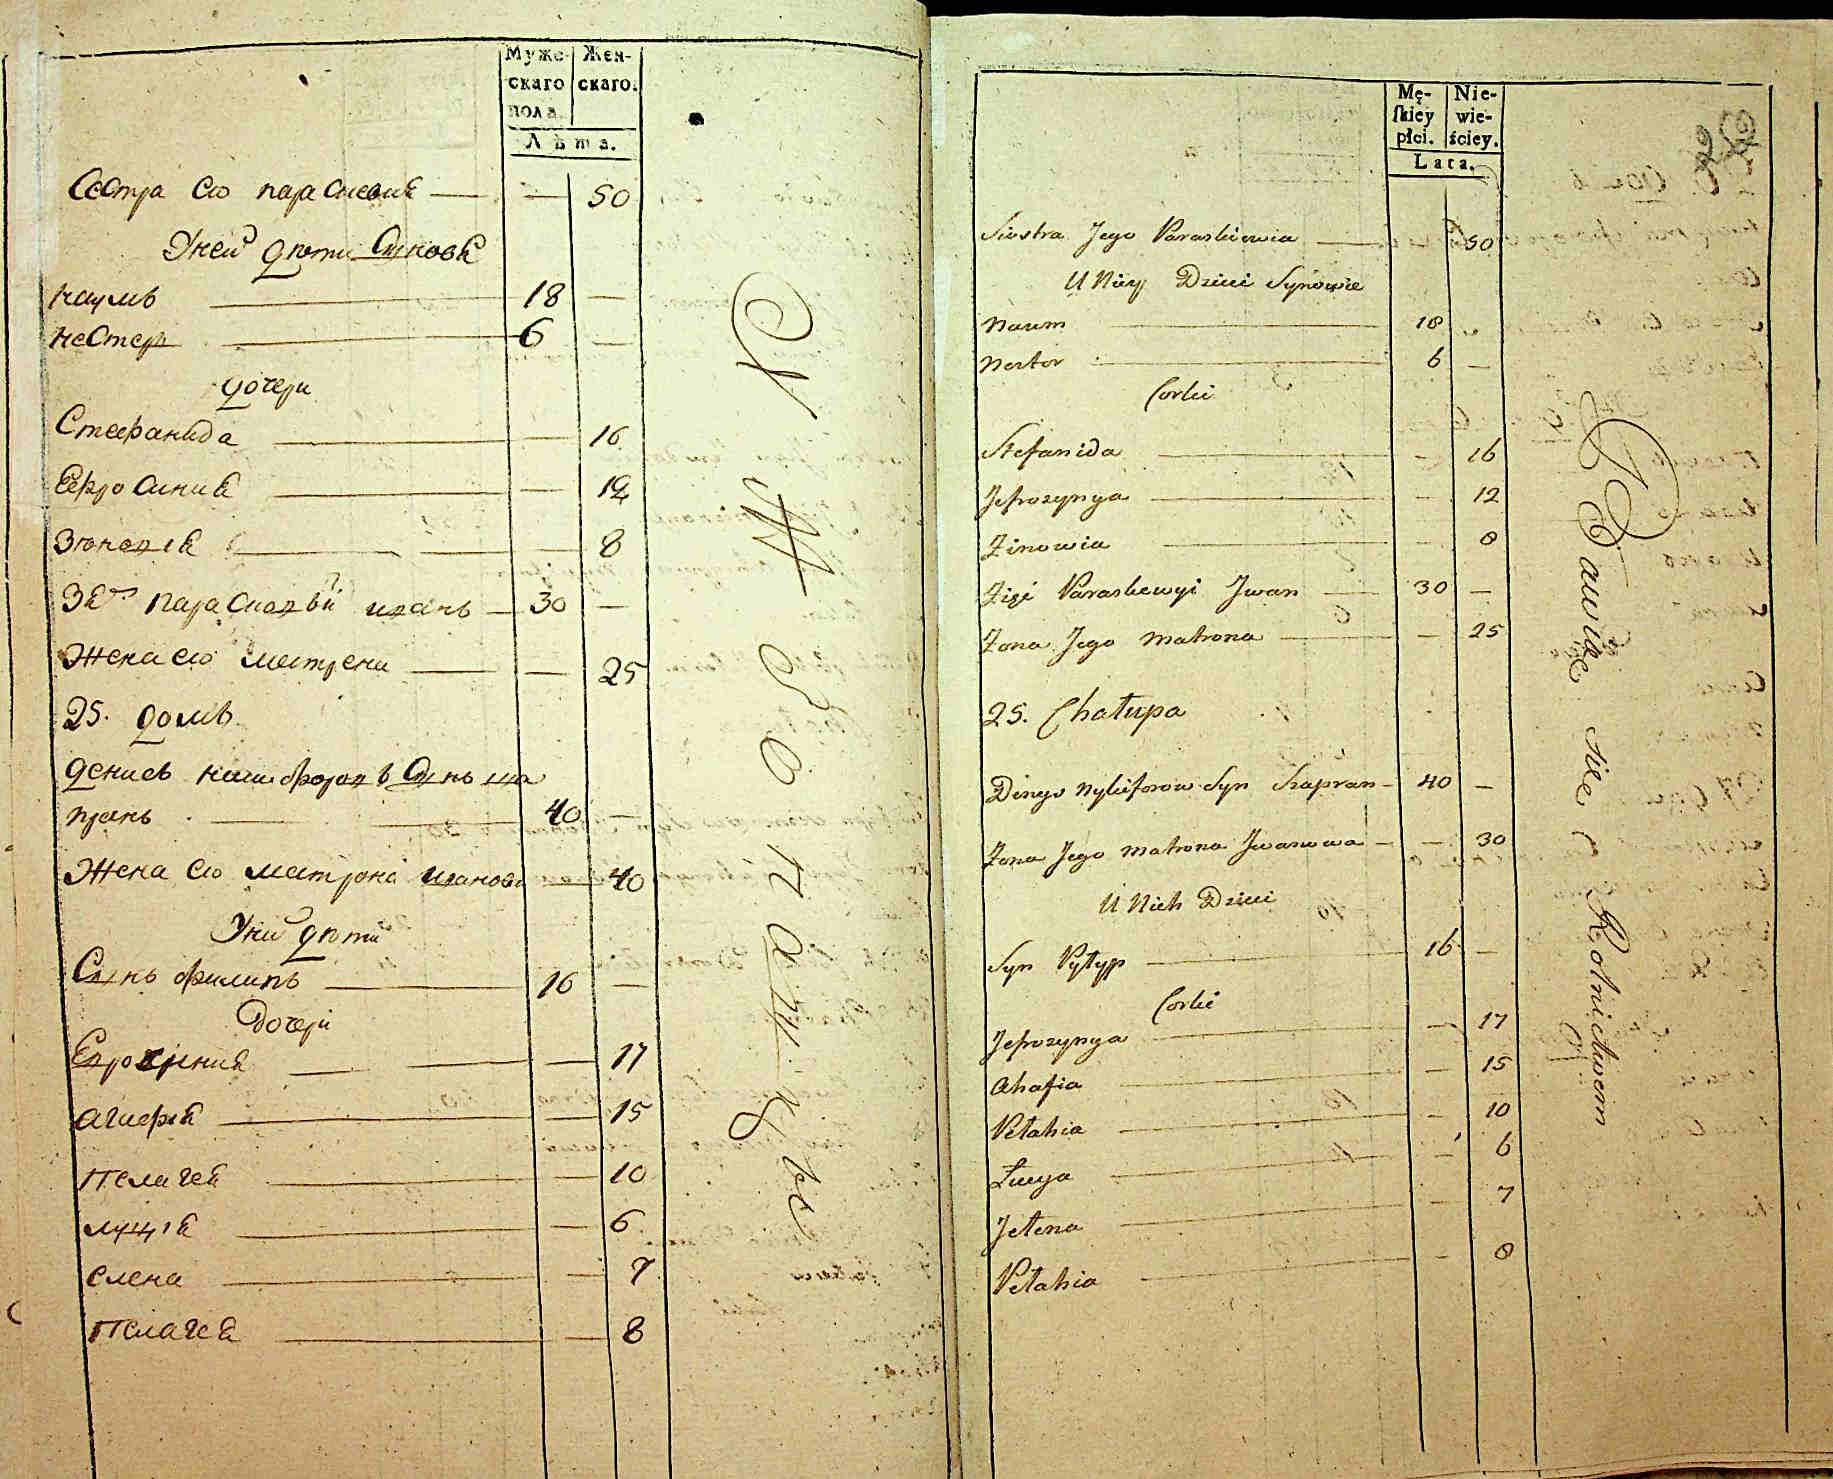 Муже-
скаго
пола.
Жен-
скаго.
Лѣта.
Сестра его параскевия — — 50
Унеи дѣти Сынове
наумъ — 18 —
нестер — 6 —
дочери
Стефанида — — 16
Ефросиния — — 12
Зѣновія — — 8
Зять параскевы иванъ — 30 —
Жена его матрена — — 25
25. домъ
денисъ никифоровъ Сынъ ша
пранъ — 40 —
Жена его матрона иванова — — 40
Уних дѣти
Сынъ филипъ — 16 —
Дочери
— — 17
агафія — — 15
пелагея — — 10
луція — — 6
елена — — 7
пелагея — — 8
Mę-
ſkiey
płci.
Nie-
wie-
ściey.
Lata.
Siostra Jego Paraskiewia — 50
U Niey Dzieci Synowie
Naum — 18 —
Nestor — 6 —
Corki
Stefanida — — 16
Jefrozynya — — 12
Zinowia — — 8
Zięć Paraskewyi Jwan — 30 —
Żona Jego Matrona — — 25
25. Chałupa
Denys Nykiforow Syn Szapran — 40 —
Żona Jego Matrona Jwanowa — — 30
U Nich Dzieci
Syn Pyłyp — 16 —
Corki
Jefrozynya — — 17
Ahafia — — 15
Pełahia — — 10
Łucya — — 6
Jełena — — 7
Pełahia — — 8
Bawiąc sie Rolnictwem